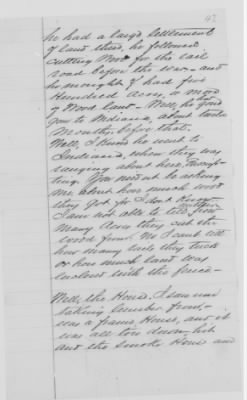 42
he had a large Settlement
of land there, he followed
cutting Wood for the rail
road before the war - and
he might of had five
Hundred acres, or more
of Wood land - Well, he
to Indiana, about twelve
Months before that.
Well, I knew he went to
Indiana when they was
ranging about here,
You need not be asking
me about how much wood
they got for I don't know
I am not able to tell from
many acres they cut the
wood from. No I can't tell
how many rails they took
or how much land was
enclosed with the fence -
Well, the House. I saw um
taking Lumber from, -
was a frame House, and it
was all tore down, but
and the smoke House and